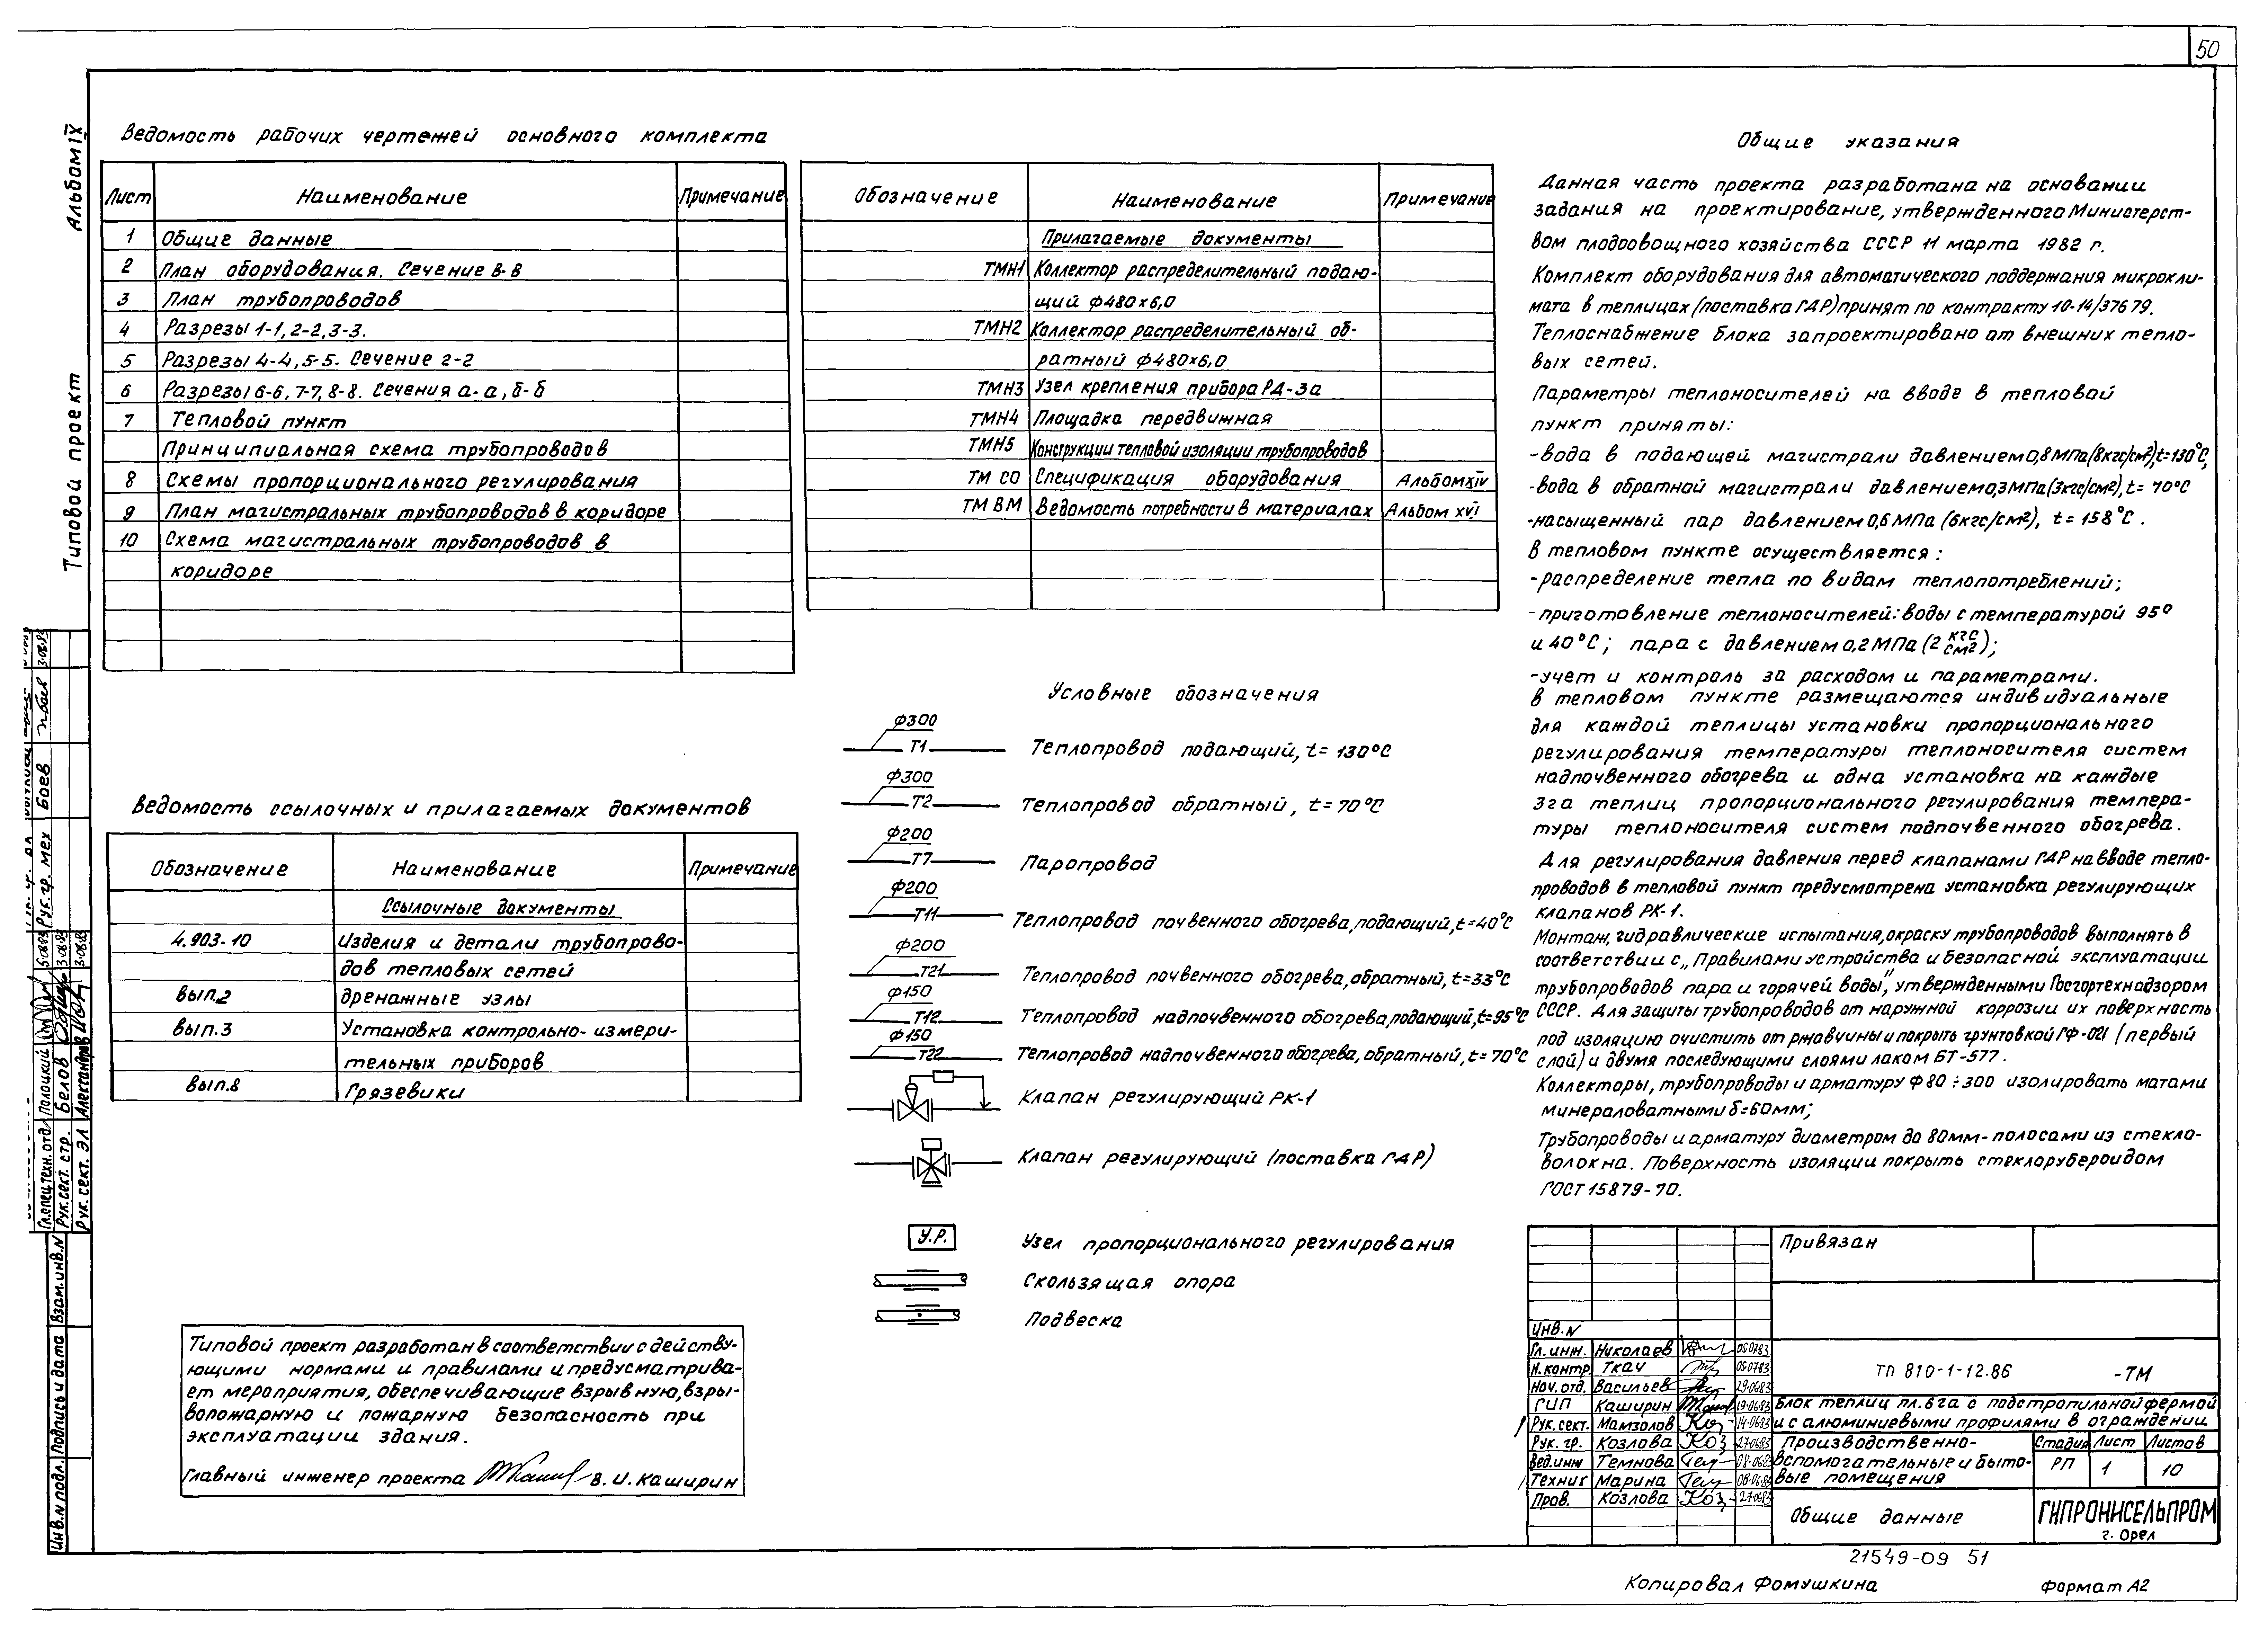 50
Альбом IX
Типовой проект
Ведомость рабочих чертежей основного комплекта
Лист Наименование Примечание
1 Общие данные
2 План оборудования. Сечение В-В
3 План трубопроводов
4 Разрезы 1-1, 2-2, 3-3.
5 Разрезы 4-4, 5-5. Сечение г-г
6 Разрезы 6-6, 7-7, 8-8. Сечения а-а, б-б
7 Тепловой пункт
Принципиальная схема трубопроводов
8 Схемы пропорционального регулирования
9 План магистральных трубопроводов в коридоре
10 Схема магистральных трубопроводов в
коридоре
Ведомость ссылочных и прилагаемых документов
Обозначение Наименование Примечание
Ссылочные документы
4.903-10 Изделия и детали трубопрово-
дов тепловых сетей
вып.2 дренажные узлы
вып.3 Установка контрольно-измери-
тельных приборов
вып.8 Грязевики
Типовой проект разработан в соответствии с действу-
ющими нормами и правилами и предусматрива-
ет мероприятия, обеспечивающие взрывную, взры-
вопожарную и пожарную безопасность при
эксплуатации здания.
Главный инженер проекта В. И. Каширин
Обозначение Наименование Примечание
Прилагаемые документы
ТМН1 Коллектор распределительный подаю-
щий ф480х6,0
ТМН2 Коллектор распределительный об-
ратный ф480х6,0
ТМН3 Узел крепления прибора РД-3а
ТМН4 Площадка передвижная
ТМН5 Конструкции тепловой изоляции трубопроводов
ТМ СО Спецификация оборудования Альбом XIV
ТМ ВМ Ведомость потребности в материалах Альбом XVI
Условные обозначения
ф300
Т1 Теплопровод подающий, t= 130°С
ф300
Т2 Теплопровод обратный, t=70°С
ф200
Т7 Паропровод
ф200
Т11 Теплопровод почвенного обогрева, подающий, t=40°С
ф200
Т21 Теплопровод почвенного обогрева, обратный, t=33°С
ф150
Т12 Теплопровод надпочвенного обогрева, подающий, t=95°С
ф150
Т22 Теплопровод надпочвенного обогрева, обратный, t=70°С
Клапан регулирующий РК-1
Клапан регулирующий (поставка ГДР)
У.Р. Узел пропорционального регулирования
Скользящая опора
Подвеска
Общие указания
Данная часть проекта разработана на основании
задания на проектирование, утвержденного Министерст-
вом плодоовощного хозяйства СССР 11 марта 1982 г.
Комплект оборудования для автоматического поддержания микрокли-
мата в теплицах (поставка ГДР) принят по контракту 10-14/37679.
Теплоснабжение блока запроектировано от внешних тепло-
вых сетей.
Параметры теплоносителей на вводе в тепловой
пункт приняты:
-вода в подающей магистрали давлением 0,8 МПа (8кгс/см²), t=130°С,
-вода в обратной магистрали давлением 0,3 МПа (3кгс/см²), t= 70°С
-насыщенный пар давлением 0,6 МПа (6кгс/см²), t= 158°С.
В тепловом пункте осуществляется:
-распределение тепла по видам теплопотреблений;
-приготовление теплоносителей: воды с температурой 95°
и 40°С; пара с давлением 0,2 МПа (2 кгс/см²);
-учет и контроль за расходом и параметрами.
В тепловом пункте размещаются индивидуальные
для каждой теплицы установки пропорционального
регулирования температуры теплоносителя систем
надпочвенного обогрева и одна установка на каждые
3га теплиц пропорционального регулирования темпера-
туры теплоносителя систем подпочвенного обогрева.
Для регулирования давления перед клапанами ГДР на вводе тепло-
проводов в тепловой пункт предусмотрена установка регулирующих
клапанов РК-1.
Монтаж, гидравлические испытания, окраску трубопроводов выполнять в
соответствии с „Правилами устройства и безопасной эксплуатации
трубопроводов пара и горячей воды", утвержденными Госгортехнадзором
СССР. Для защиты трубопроводов от наружной коррозии их поверхность
под изоляцию очистить от ржавчины и покрыть грунтовкой ГФ-021 (первый
слой) и двумя последующими слоями лаком БТ-577.
Коллекторы, трубопроводы и арматуру ф 80 ÷ 300 изолировать матами
минераловатными δ=60мм;
Трубопроводы и арматуру диаметром до 80мм-полосами из стекло-
волокна. Поверхность изоляции покрыть стеклорубероидом
ГОСТ 15879-70.
Привязан
Инв.N
Гл. инж. Николаев 05.07.83
Н.контр. Ткач 05.07.83
Нач. отд. Васильев 29.06.83
ГИП Каширин 19.06.83
Рук. сект. Мамзолов 14.06.83
Рук. гр. Козлова 27.06.83
Вед.инж Темнова 08.06.83
Техник Марина 08.06.83
Пров. Козлова 27.06.83
ТП 810-1-12.86 -ТМ
Блок теплиц пл. 6 га с подстропильной фермой
и с алюминиевыми профилями в ограждении
Производственно-
вспомогательные и быто-
вые помещения
Стадия Лист Листов
РП 1 10
Общие данные
ГИПРОНИСЕЛЬПРОМ
г. Орел
21549-09 51
Копировал Фомушкина
Формат А2
Рук. гр. мех Боев
Гл.спец.техн.отд. Полоцкий
Рук.сект. стр. Белов
Рук. сект. ЭЛ Александров
Инв.N подл. Подпись и дата Взам.инв.N